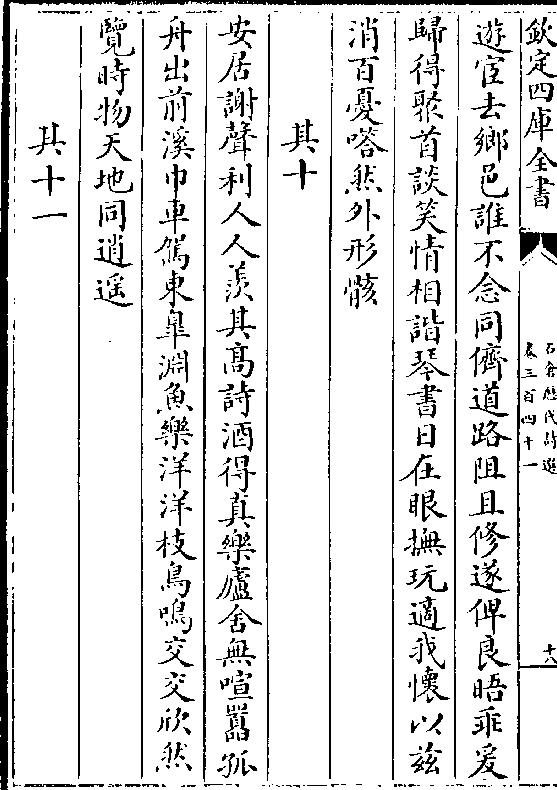 欽定四庫全書
石倉歷代詩選
卷三百四十一
十八
遊宦去鄉邑誰不念同儕道路阻且修遂俾良晤乖爰
歸得聚首談笑情相諧琴書日在眼撫玩適我懷以兹
消百憂嗒然外形骸
其十
安居謝聲利人人羨其高詩酒得真樂廬舍無喧囂孤
舟出前溪巾車駕東臯淵魚樂洋洋枝鳥鳴交交欣然
覽時物天地同逍遥
其十一